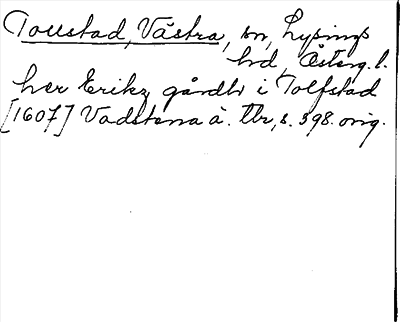 Tollstad, Västra, sn, Lysings
hd, Österg. l.
her Erikz gårdh i Tolfstad
[1607] Vadstena ä. Tbr, s. 398. orig.